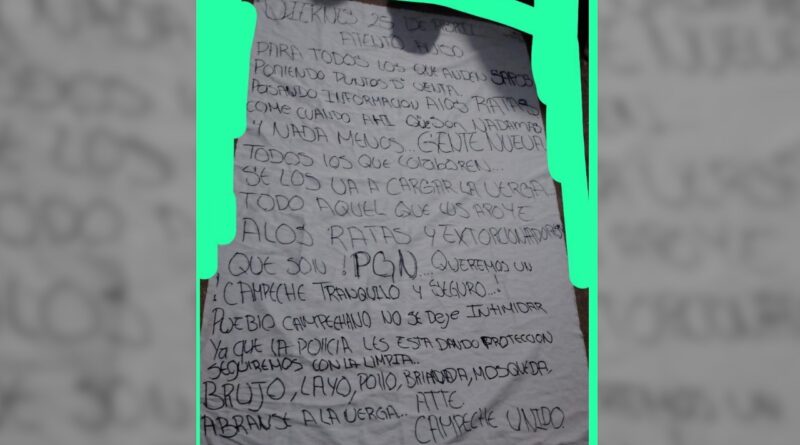 VIERNES 25 DE ABRIL
ATENTO AVISO
PARA TODOS LOS QUE ANDEN SAPOS
PONIENDO PUNTOS D VENTA
PASANDO INFORMACION ALOS RATAS
COME CUANDO AHI QUE SON NADAMAS
Y NADA MENOS... GENTE NUEVA
TODOS LOS QUE COLABOREN...
SE LOS VA A CARGAR LA VERGA
TODO AQUEL QUE LOS APOYE
ALOS RATAS Y EXTORCIONADORES
¡ QUE SON ! PGN... QUEREMOS UN
¡ CAMPECHE TRANQUILO Y SEGURO...!
PUEBLO CAMPECHANO NO SE DEJE INTIMIDAR
Ya QUE LA POLICIA LES ESTA DANDO PROTECCION
SEGUIREMOS CON LA LIMPIA..
BRUJO, LAYO, POLLO, BRIANDA, MOSQUEDA.
ABRANSE A LA VERGA..
ATTE
CAMPECHE UNIDO.